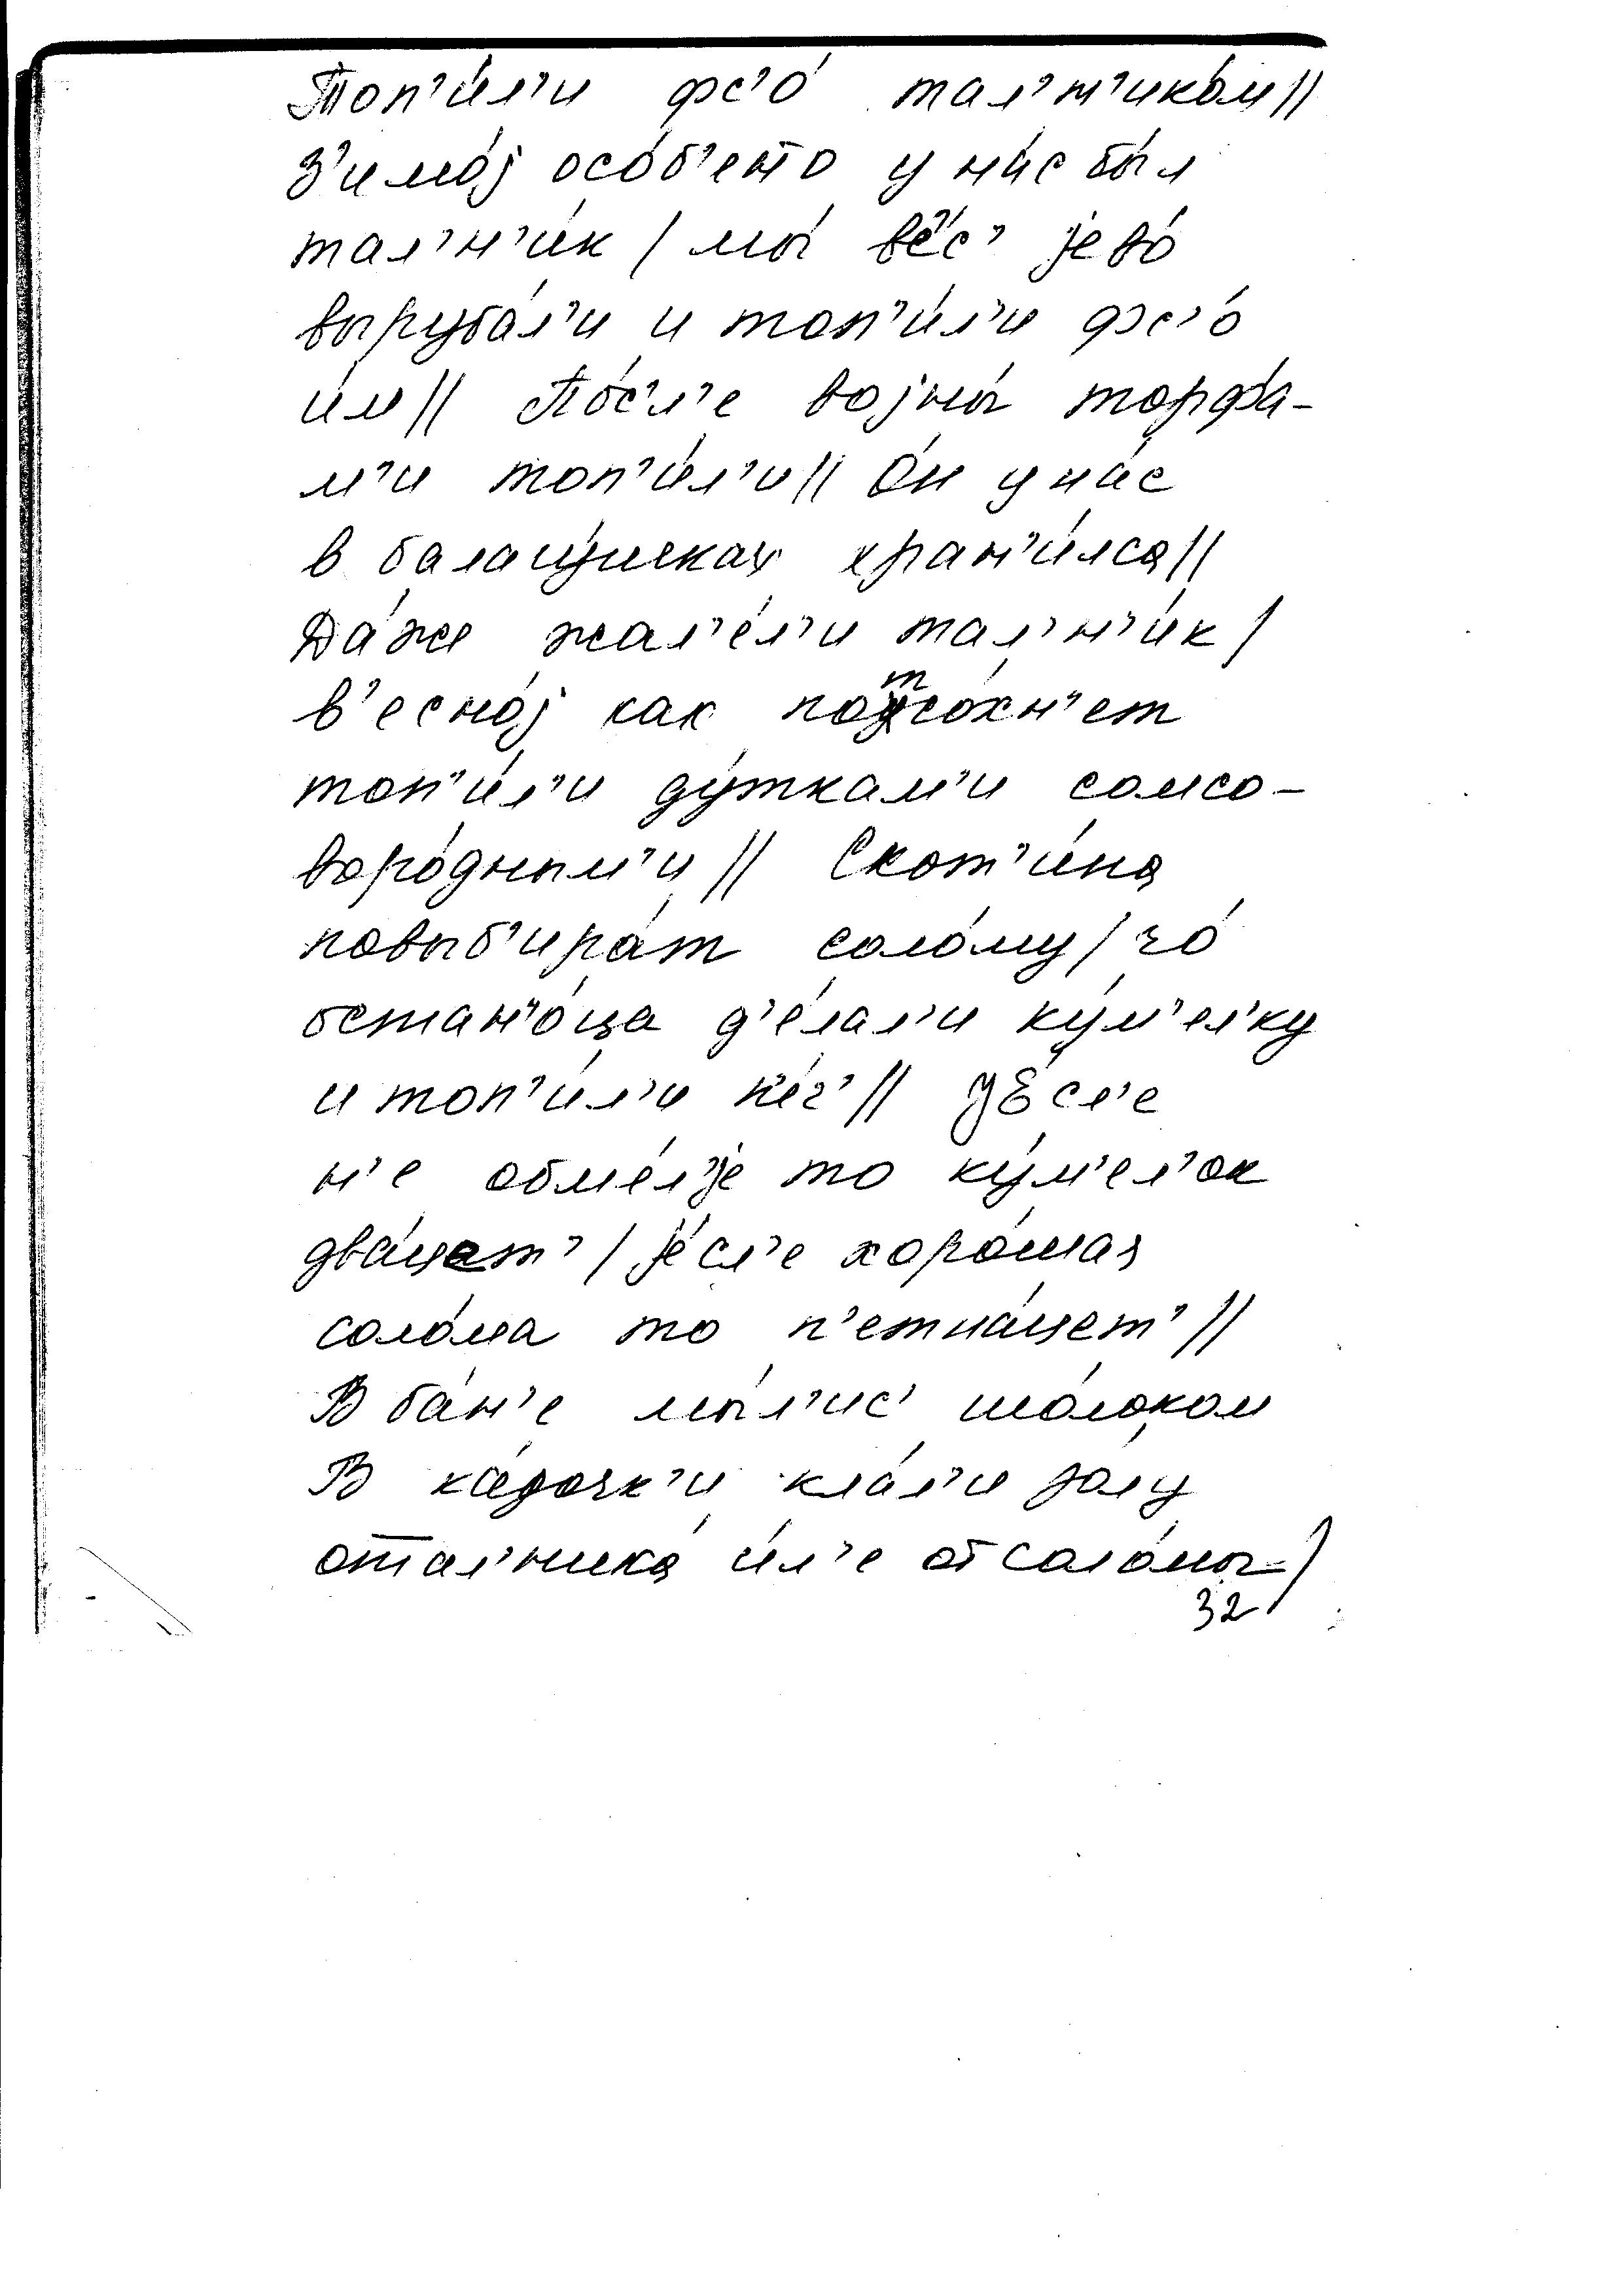 Топ’и́л’и фс’о́ тал’т’ико́м //
З’имо́j осо́б’ен̄о у на́с бы́л
тал’н’и́к / мы́ в’е́с’ jево́
вырубáл’и и топ’и́л’и фс’о́
и́м // По́с’л’е воjны́ торфа́-
м’и топ’и́л’и // О́н у на́с
в балагу́шках хран’и́лса //
Да́же жал’е́л’и тал’н’и́к /
в’есно́j как потсо́хн’ет
топ’и́л’и ду́ткам’и сомсо-
воро́дным’и // Скот’и́на
повыб’ира́т соло́му / чо́
остан’о́ца д’е́лал’и ку́м’ел’ку
и топ’и́л’и п’е́ч’ // jЕ́сл’е
н’е обме́л’jе то ку́м’ел’ок
два́цет’ / jе́сл’е хоро́шаја
соло́ма то п’етна́цет’ //
В ба́н’е мы́л’ис’ шо́локом
В ка́дочк’и кла́л’и золу́
отал’ника́ и́л’е от соло́мы /
32